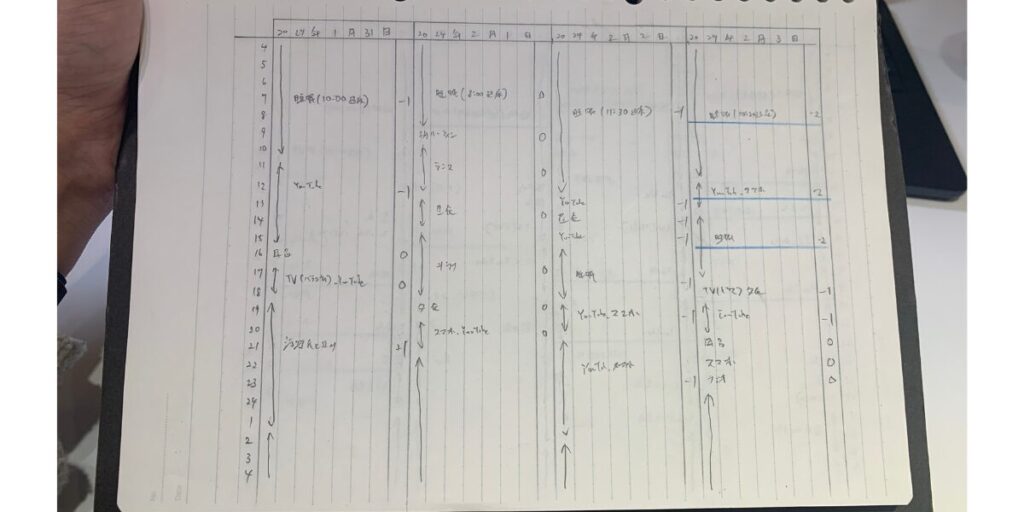 2024年1月31日
2024年2月1日
2024年2月2日
2024年2月3日
4
5
6
7
8
9
10
11
12
13
14
15
16
17
18
19
20
21
22
23
24
1
2
3
4
睡眠(10:00起床)
-1
YouTube
-1
0
TV(バラエティ), YouTube
0
+1
睡眠(8:00起床)
0
0
テニス
0
昼食
0
0
夕食
0
スマホ, YouTube
0
睡眠(11:30起床)
-1
YouTube
-1
昼食
-1
YouTube
-1
睡眠
-1
YouTube, スマホ
-1
YouTube, スマホ
-1
-2
YouTube, スマホ
-2
睡眠
-2
-1
YouTube
-1
0
スマホ
0
ラジオ
0
No.
Date